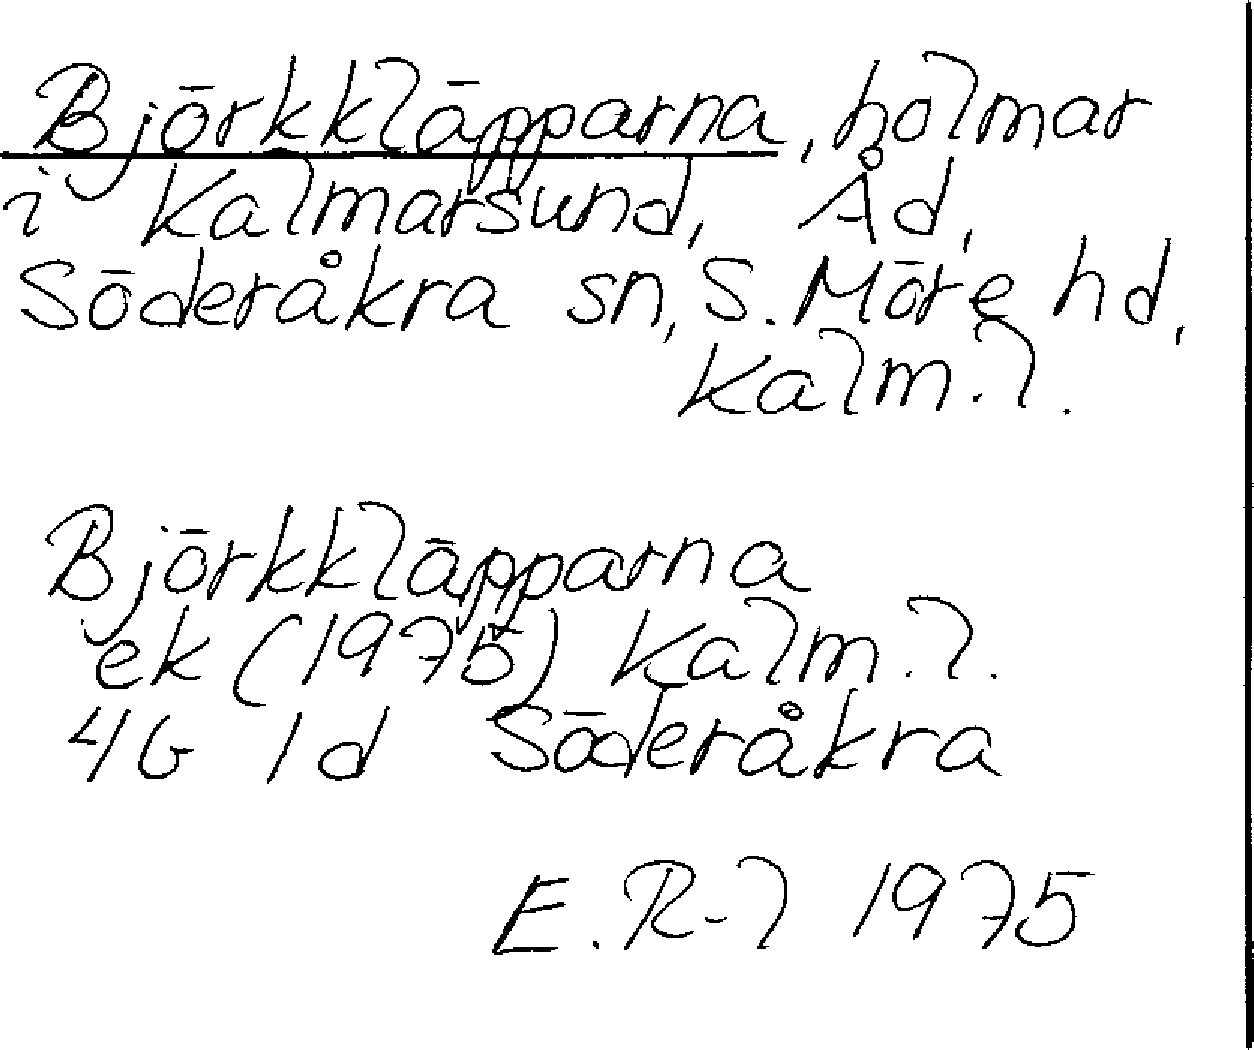 Björkkläpparna, holmar
i Kalmarsund, Åd,
Söderåkra sn, S. Möre hd,
Kalm. l.
Björkkläpparna
ek (1975) Kalm. l.
4G 1d Söderåkra
E. R-l 1975